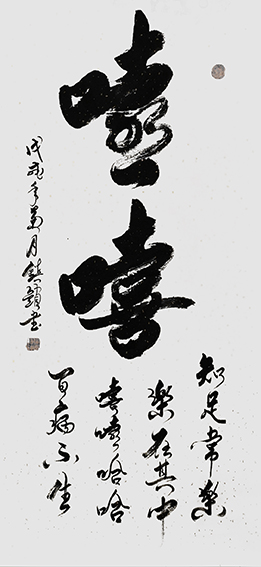 嘻嘻
知足常樂
樂在其中
嘻嘻哈哈
百病不生
戊戌年月書